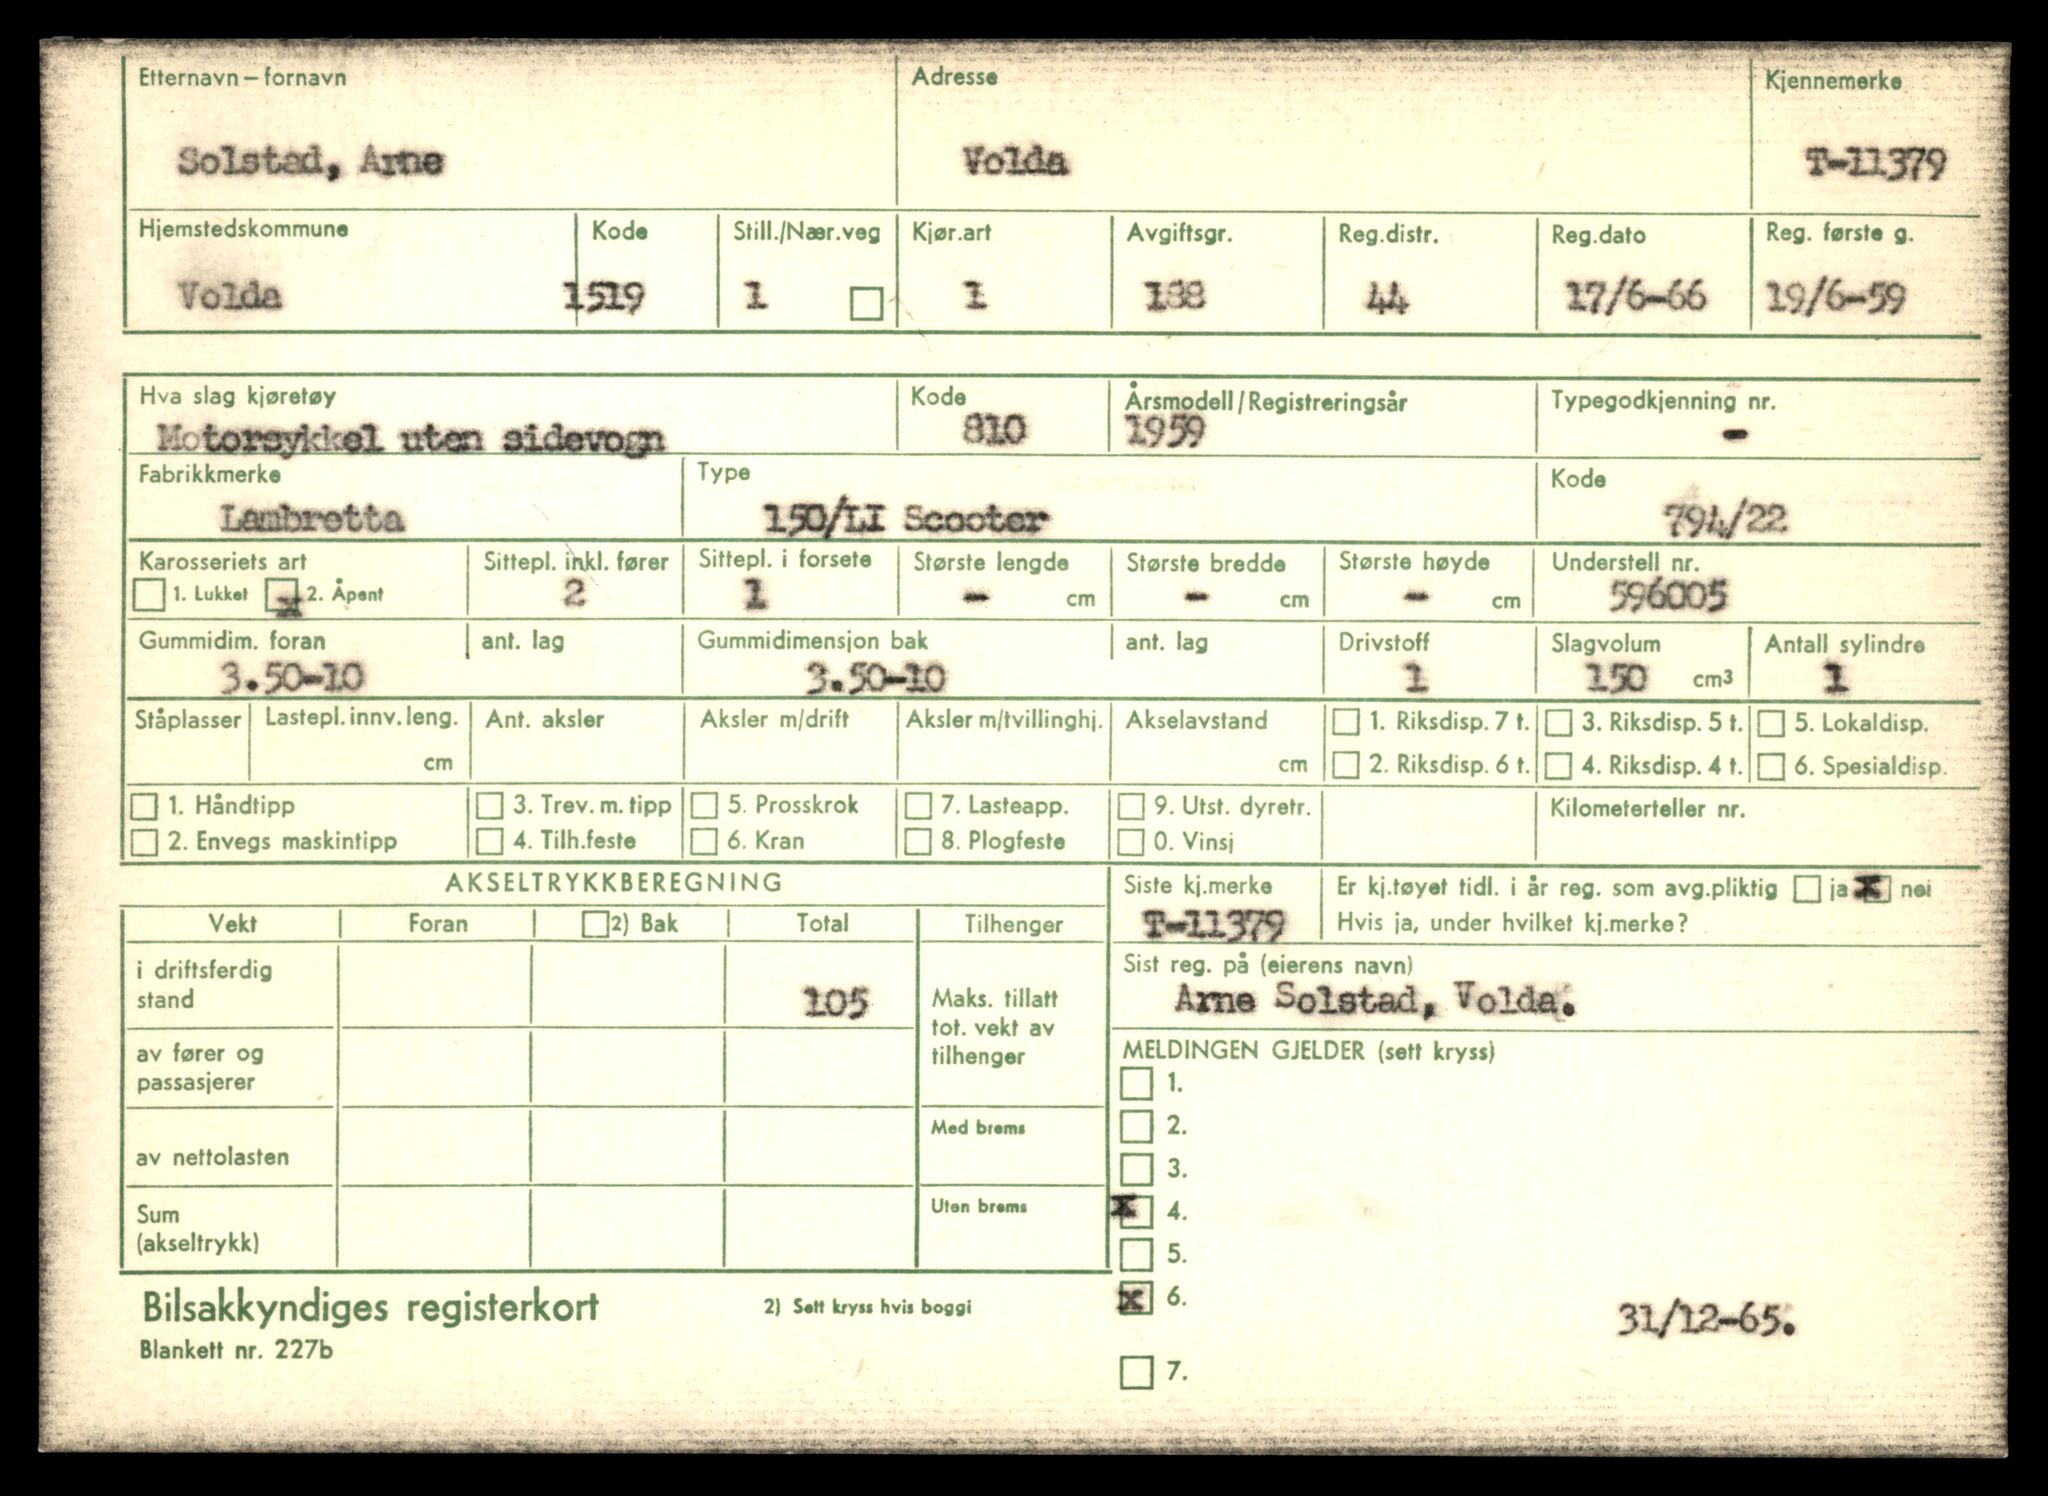 Etternavn – fornavn Adresse Kjennemerke
Solstad, Arne Volda T-11379
Hjemstedskommune Kode Still./Nær.veg Kjør.art Avgiftsgr. Reg.distr. Reg.dato Reg. første g.
Volda 1519 1 1 188 44 17/6-66 19/6-59
Hva slag kjøretøy Kode Årsmodell/Registreringsår Typegodkjenning nr.
Motorsykkel uten sidevogn 810 1959 -
Fabrikkmerke Type Kode
Lambretta 150/LI Scooter 794/22
Karosseriets art Sittepl. inkl. fører Sittepl. i forsete Største lengde Største bredde Største høyde Understell nr.
1. Lukket x 2. Åpent 2 1 - cm - cm - cm 596005
Gummidim. foran ant. lag Gummidimensjon bak ant. lag Drivstoff Slagvolum Antall sylindre
3.50-10 3.50-10 1 150 cm³ 1
Ståplasser Lastepl. innv. leng. Ant. aksler Aksler m/drift Aksler m/tvillinghj. Akselavstand 1. Riksdisp. 7 t. 3. Riksdisp. 5 t. 5. Lokaldisp.
cm cm 2. Riksdisp. 6 t. 4. Riksdisp. 4 t. 6. Spesialdisp.
1. Håndtipp 3. Trev. m. tipp 5. Prosskrok 7. Lasteapp. 9. Utst. dyretr. Kilometerteller nr.
2. Envegs maskintipp 4. Tilh.feste 6. Kran 8. Plogfeste 0. Vinsj
AKSELTRYKKBEREGNING Siste kj.merke Er kj.tøyet tidl. i år reg. som avg.pliktig ja x nei
Vekt Foran 2) Bak Total Tilhenger T-11379 Hvis ja, under hvilket kj.merke?
i driftsferdig stand 105 Maks. tillatt tot. vekt av tilhenger
Sist reg. på (eierens navn)
Arne Solstad, Volda.
av fører og passasjerer
MELDINGEN GJELDER (sett kryss)
1.
Med brems 2.
av nettolasten 3.
Sum (akseltrykk) Uten brems x 4.
5.
Bilsakkyndiges registerkort 2) Sett kryss hvis boggi x 6. 31/12-65.
Blankett nr. 227b 7.